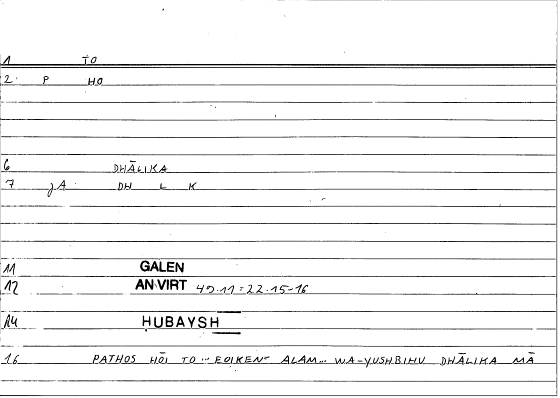 1 TO
2. P HO
6 DHĀLIKA
7 JA. DH L K
11 GALEN
12 AN·VIRT 49.11 = 22.15-16
14 HUBAYSH
16 PATHOS HŌI TO ··· EOIKEN ALAM... WA-YUSHBIHU DHĀLIKA MĀ